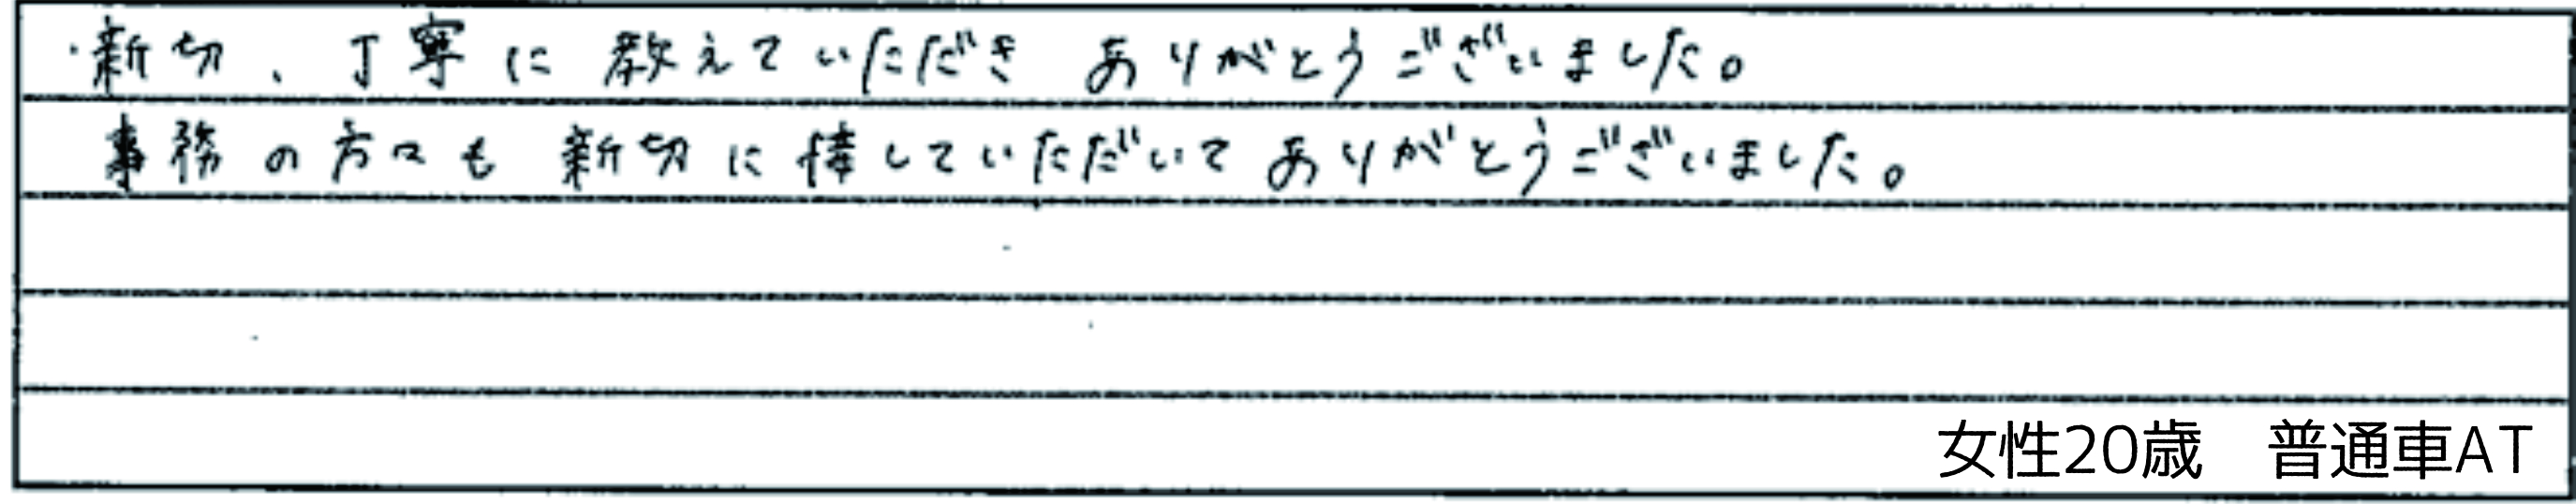 ・新切、丁寧に教えていただき ありがとうございました。
事務の方々も 新切に して いただいて ありがとうございました。
女性20歳　普通車AT